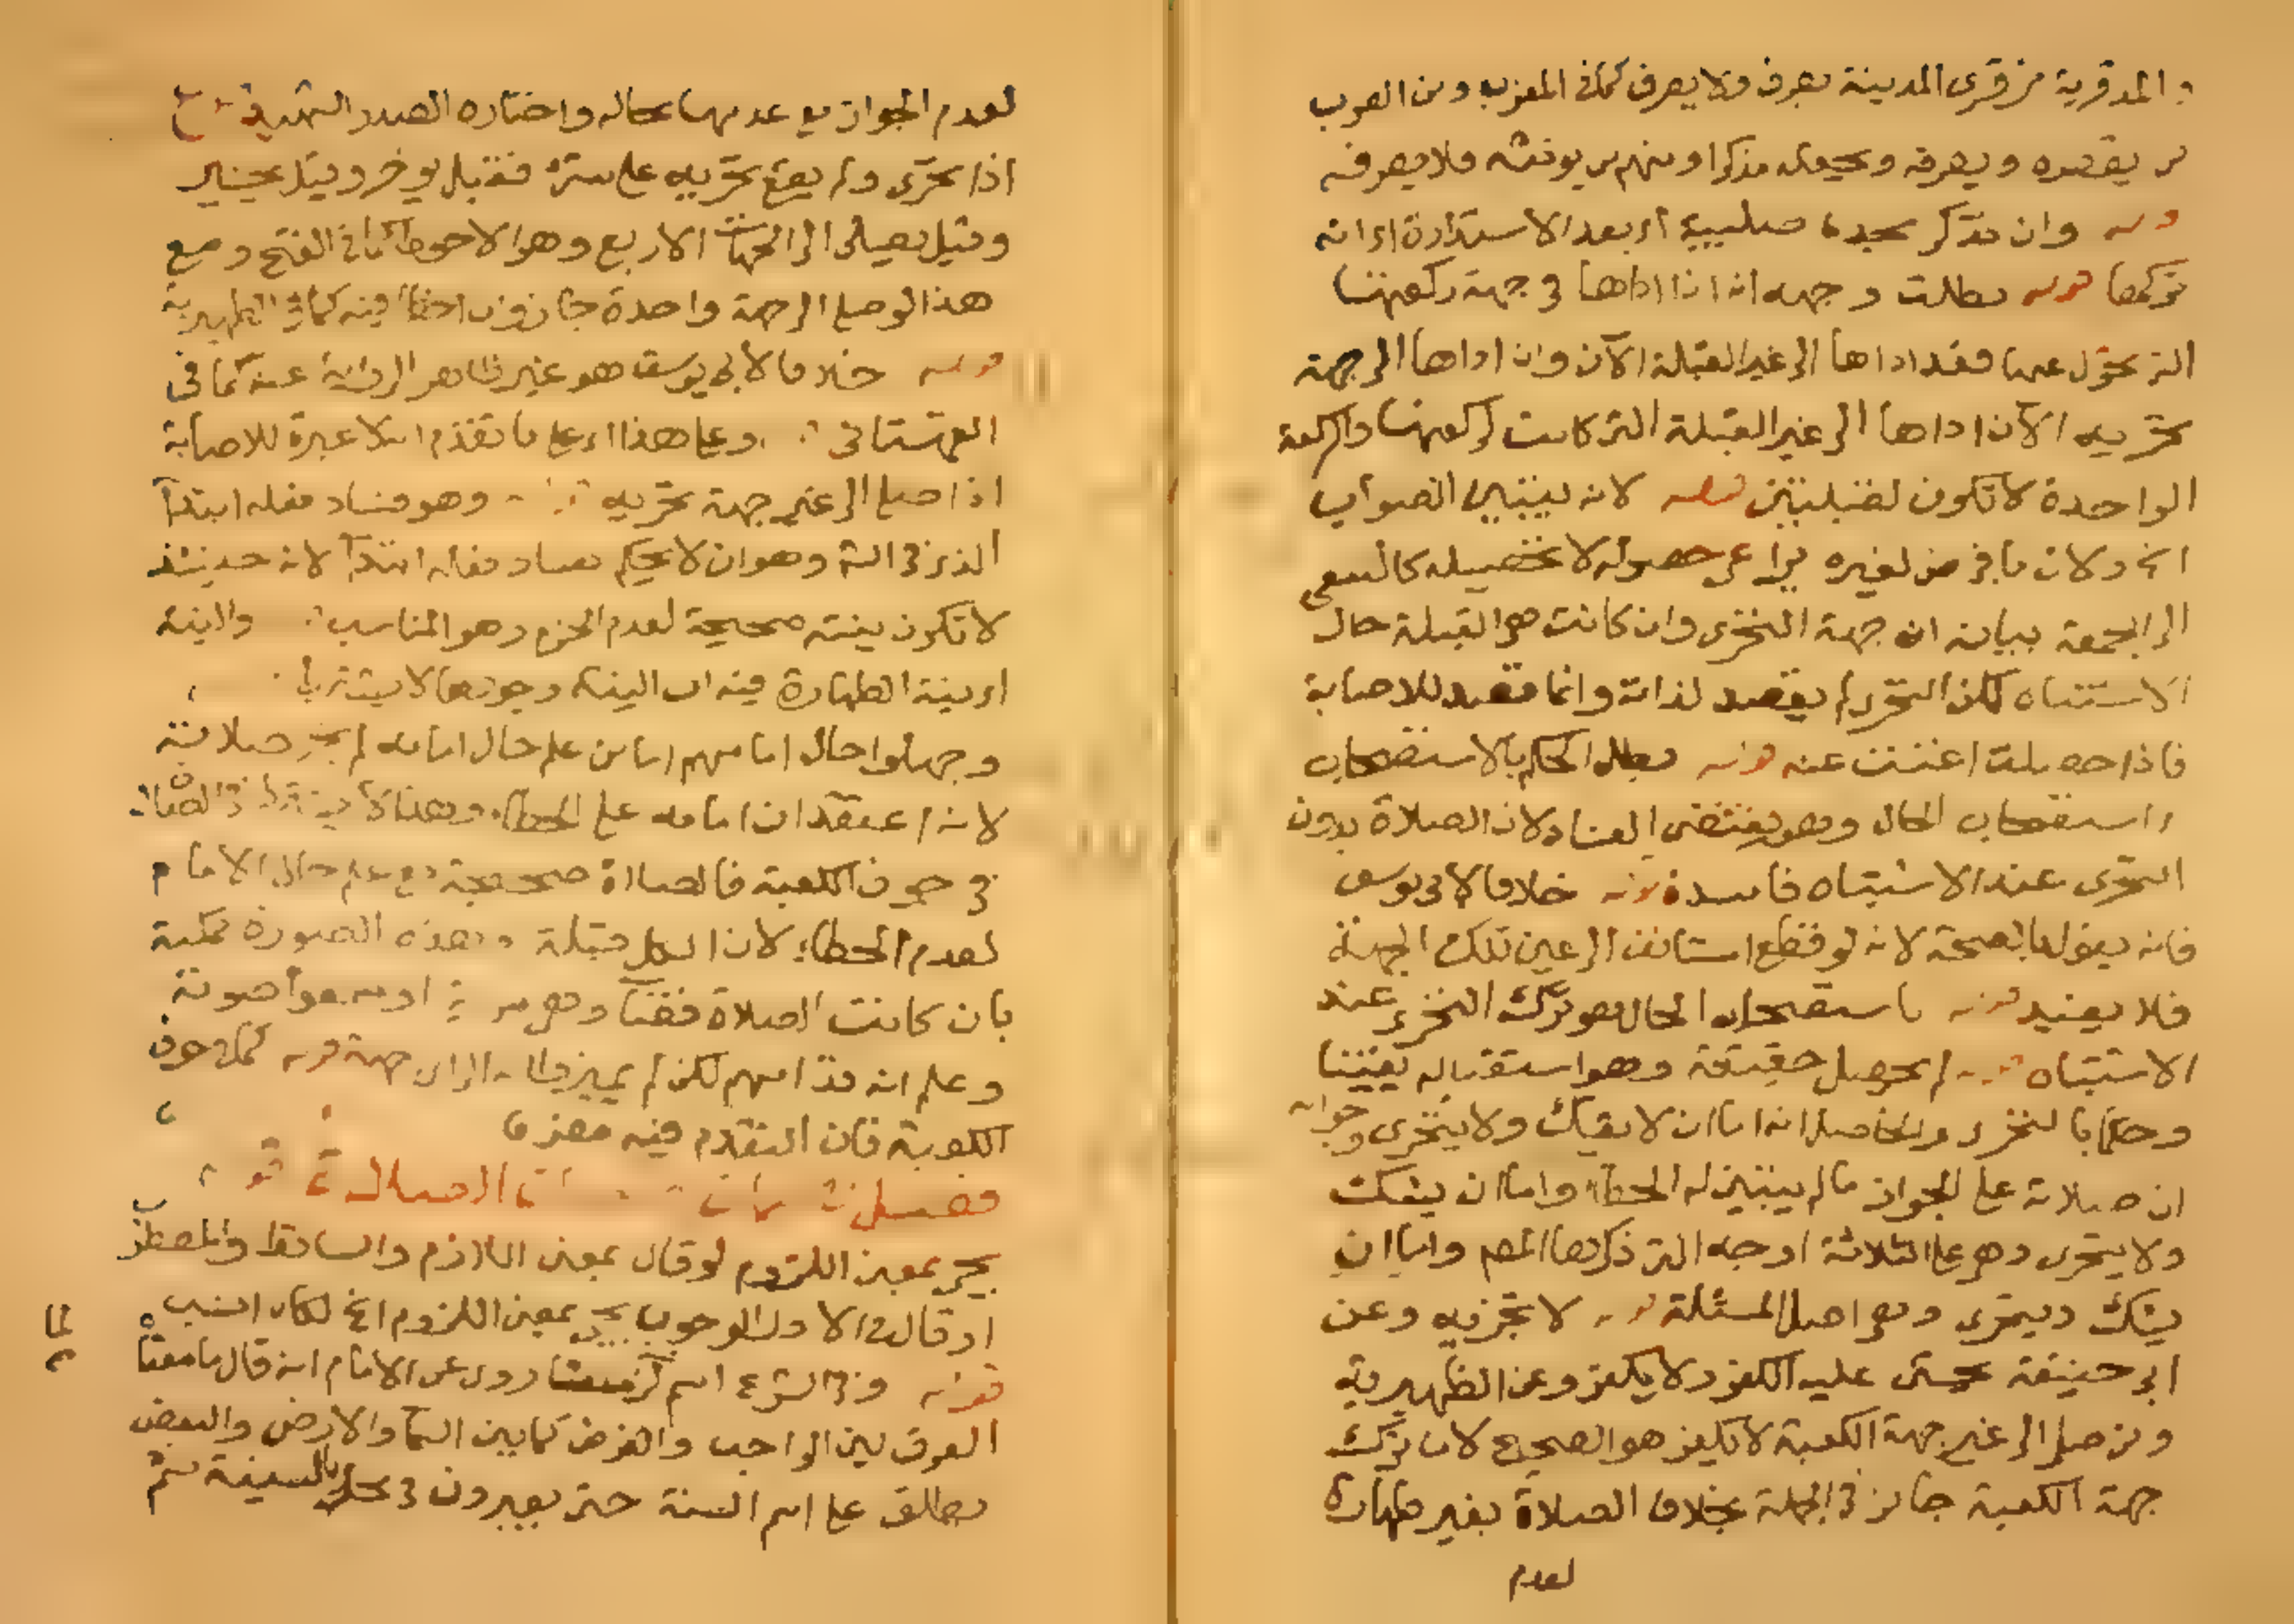 قرية من قرى المدينة يصرف ولا يصرف كما في المغرب ومن العرب
من يقصره ويصرفه ويجعله مذكرا ومنهم من يؤنثه فلا يصرفه
قوله وان تذكر سجدة صلبية اي بعد الاستدارة اي انه
تركها قوله بطلت وجهه انه اذا اداها في جهة ركعتها
التي تحول عنها فقد اداها الى غير القبلة الآن وان اداها الى جهة
تحريه الآن اداها الى غير القبلة التي كانت لركعتها والركعة
الواحدة لا تكون لقبلتين قوله لانه بيتين الصواب
الخ ولان ما فرض لغيره يراعى حصوله لا تحصيله كالسعي
الى الجمعة بيانه ان جهة التحري وان كانت هي القبلة حال
الاشتباه لكن التحري لم يقصد لذاته وانما قصد للاصابة
فاذا حصلت اغنت عنه قوله بطل الحكم بالاستصحاب
استصحاب الحال وهو يقتضى الفساد لان الصلاة بدون
التحرى عند الاشتباه فاسدة قوله خلافا لابي يوسف
فانه يقول بالصحة لانه لو قطع استأنف الى عين تلك الجهة
فلا يفيد قوله باستصحاب الحال هو ترك التحري عند
الاشتباه قوله لم يحصل حقيقة وهو استقباله يقينا
وحكما بالتحري والحاصل انه اما ان لا يشك ولا يتحرى وجوابه
ان صلاته على الجواز ما لم يتبين له الخطاء واما ان يشك
ولا يتحرى وهو على الثلاثة اوجه التي ذكرها المص واما ان
يشك ويتحرى وهو اصل المسئلة قوله لا تجزيه وعن
ابي حنيفة يخشى عليه الكفر ولا يكفر وعن الظهيرية
ومن صلى الى غير جهة الكعبة لا يكفر هو الصحيح لان ترك
جهة الكعبة جائز في الجملة بخلاف الصلاة بغير طهارة
لعدم
لعدم الجواز مع عدمها بحال واختاره الصدر الشهيد
اذا تحرى ولم يقع تحريه على شئ فقيل يؤخر وقيل يخير
وقيل يصلى الى الجهات الاربع وهو الاحوط كما في الفتح ومع
هذا لو صلى الى جهة واحدة جاز وان اخطأ فيه كما في الظهيرية
قوله خلافا لابي يوسف هو غير ظاهر الرواية عنه كما في
القهستاني وعلى هذا اي على ما تقدم انه لا عبرة للاصابة
اذا صلى الى غير جهة تحريه وهو فساد فعله ابتداً
الذي في الشر وهو ان لا يحكم بفساد فعله ابتداً لانه حينئذ
لا تكون نيته صحيحة لعدم الجزم وهو المناسب والنية
اي نية الطهارة فيه ان النية وجودها لا يشترط
وجهلوا حال امامهم اما من علم حال امامه لم تجز صلاته
لانه اعتقد ان امامه على الخطاء وهذا
في جوف الكعبة فالصلاة صحيحة مع علم حال الامام
لعدم الخطاء لان الكل قبلة وهذه الصورة ممكنة
بان كانت الصلاة
وعلم انه قدامهم لكن لم يميز الى اي جهة قوله كجوف
الكعبة فان التقدم فيه مضر
يجئ بمعنى اللزوم لو قال بمعنى اللازم والساقط والمضطرب
او قال ان الاول الوجوب يجئ بمعنى اللزوم الخ لكان انسب
قوله وفي الشرع اسم لزمنا روى عن الامام انه قال ما معناه
الفرق بين الواجب والفرض كما بين السما والارض والبعض
يطلق على اسم السنة حتى يعبرون في محل بالسنية ثم
لما